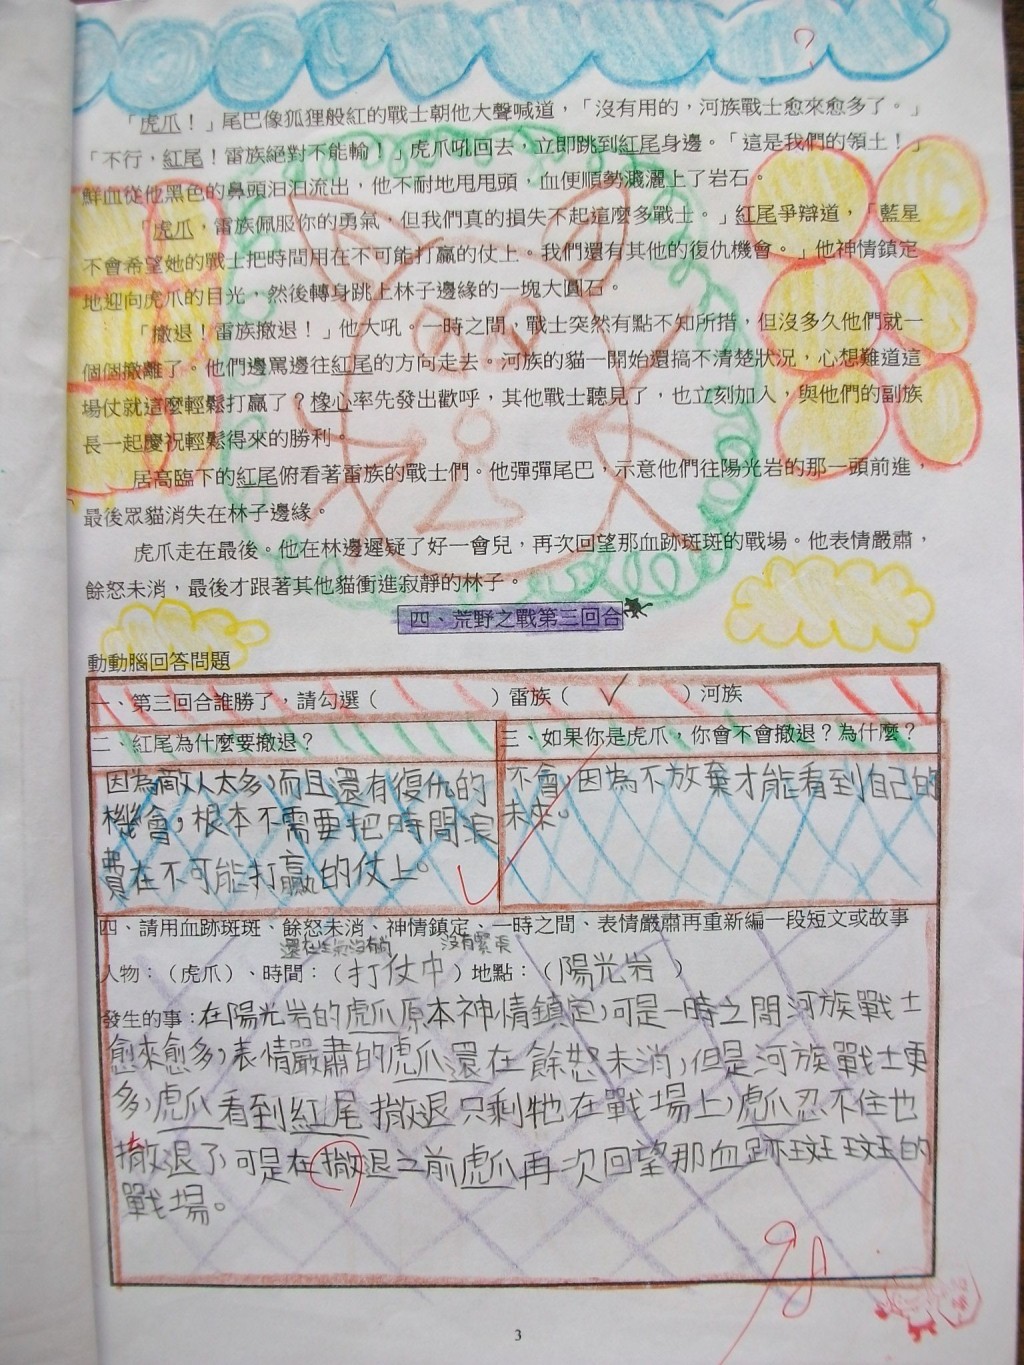 「虎爪！」尾巴像狐狸般紅的戰士朝他大聲喊道，「沒有用的，河族戰士愈來愈多了。」
「不行，紅尾！雷族絕對不能輸！」虎爪吼回去，立即跳到紅尾身邊。「這是我們的領土！」
鮮血從他黑色的鼻頭汩汩流出，他不耐地甩甩頭，血便順勢濺灑上了岩石。
「虎爪，雷族佩服你的勇氣，但我們真的損失不起這麼多戰士。」紅尾爭辯道，「藍星
不會希望她的戰士把時間用在不可能打贏的仗上。我們還有其他的復仇機會。」他神情鎮定
地迎向虎爪的目光，然後轉身跳上林子邊緣的一塊大圓石。
「撤退！雷族撤退！」他大吼。一時之間，戰士突然有點不知所措，但沒多久他們就一
個個撤離了。他們邊罵邊往紅尾的方向走去。河族的貓一開始還搞不清楚狀況，心想難道這
場仗就這麼輕鬆打贏了？橡心率先發出歡呼，其他戰士聽見了，也立刻加入，與他們的副族
長一起慶祝輕鬆得來的勝利。
居高臨下的紅尾俯看著雷族的戰士們。他彈彈尾巴，示意他們往陽光岩的那一頭前進，
最後眾貓消失在林子邊緣。
虎爪走在最後。他在林邊遲疑了好一會兒，再次回望那血跡斑斑的戰場。他表情嚴肅，
餘怒未消，最後才跟著其他貓衝進寂靜的林子。
四、荒野之戰第三回合
動動腦回答問題
一、第三回合誰勝了，請勾選（ ）雷族（ ✓ ）河族
二、紅尾為什麼要撤退？
因為敵人太多，而且還有復仇的
機會，根本不需要把時間浪
費在不可能打贏的仗上。
三、如果你是虎爪，你會不會撤退？為什麼？
不會，因為不放棄才能看到自己的
未來。
四、請用血跡斑斑、餘怒未消、神情鎮定、一時之間、表情嚴肅再重新編一段短文或故事
還在生氣沒有的 沒有緊張
人物：（虎爪）、時間：（打仗中）地點：（陽光岩）
發生的事：在陽光岩的虎爪原本神情鎮定，可是一時之間河族戰士
愈來愈多，表情嚴肅的虎爪還在餘怒未消，但是河族戰士更
多，虎爪看到紅尾撤退只剩牠在戰場上，虎爪忍不住也
撤退了，可是在撤退之前虎爪再次回望那血跡斑斑的
戰場。
98
3